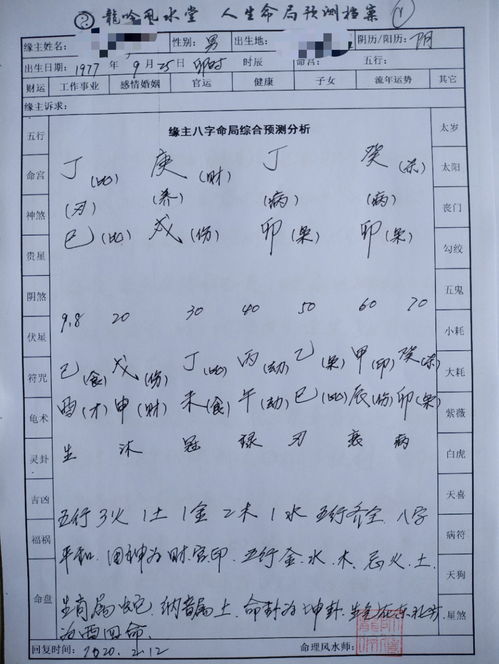 龍吟風水堂 人生命局预测档案 1
缘主姓名: 性别: 男 出生地: 阴历/阳历: 阴
出生日期: 1977 年 9月25日 卯时 时辰 命宫: 五行:
财运 工作事业 感情婚姻 官运 健康 子女 流年运势 其它
缘主诉求:
五行 缘主八字命局综合预测分析 太岁
命宫 丁(比) 庚(财) 丁 癸(杀) 太阳
神煞 (刃) (养) (病) (病) 丧门
贵星 巳(比) 戌(伤) 卯(枭) 卯(枭) 勾绞
阴煞 五鬼
伏星 9.8 20 30 40 50 60 70 小耗
符咒 己(食) 戊(伤) 丁(比) 丙(劫) 乙(枭) 甲(印) 癸(杀) 大耗
龟术 酉(才) 申(财) 未(食) 午(劫) 巳(比) 辰(伤) 卯(枭) 紫薇
灵卦 生 沐 冠 禄 刃 衰 病 白虎
吉凶 天喜
福祸 五行3火1土1金2木1水 五行齐全 八字 病符
平和 用神为财官印 五行金、水、木 忌火、土 天狗
命盘 生肖属蛇 纳音属土 命卦为坤卦 星煞
为西四命
回复时间: 2020.2.12 命理风水师: